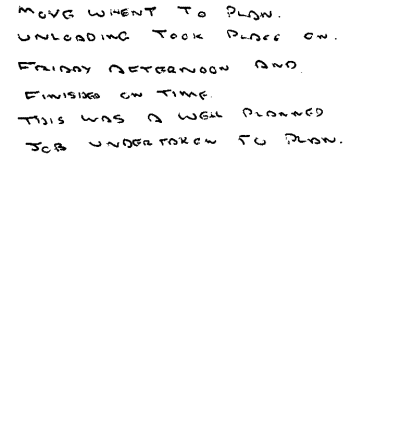 MOVE WHENT TO PLAN.
UNLOADING TOOK PLACE ON.
FRIDAY AFTERNOON AND
FINISHED ON TIME.
THIS WAS A WELL PLANNED
JOB UNDERTAKEN TO PLAN.